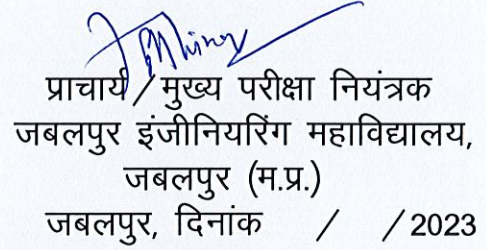 प्राचार्य/मुख्य परीक्षा नियंत्रक
जबलपुर इंजीनियरिंग महाविद्यालय,
जबलपुर (म.प्र.)
जबलपुर, दिनांक / / 2023